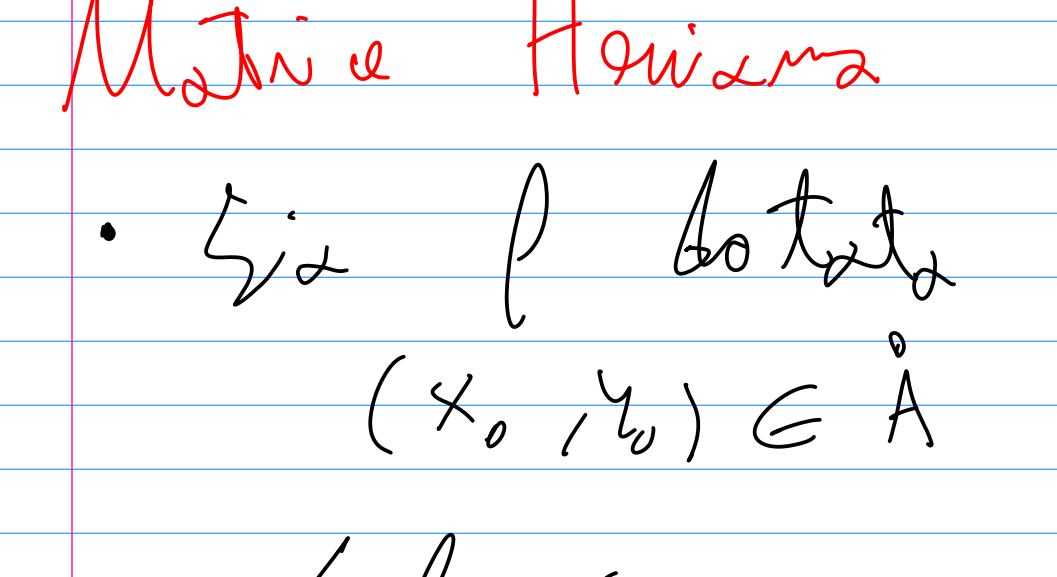 Matrice Hessiana
• Sia f dotata
(x₀, y₀) ∈ Å